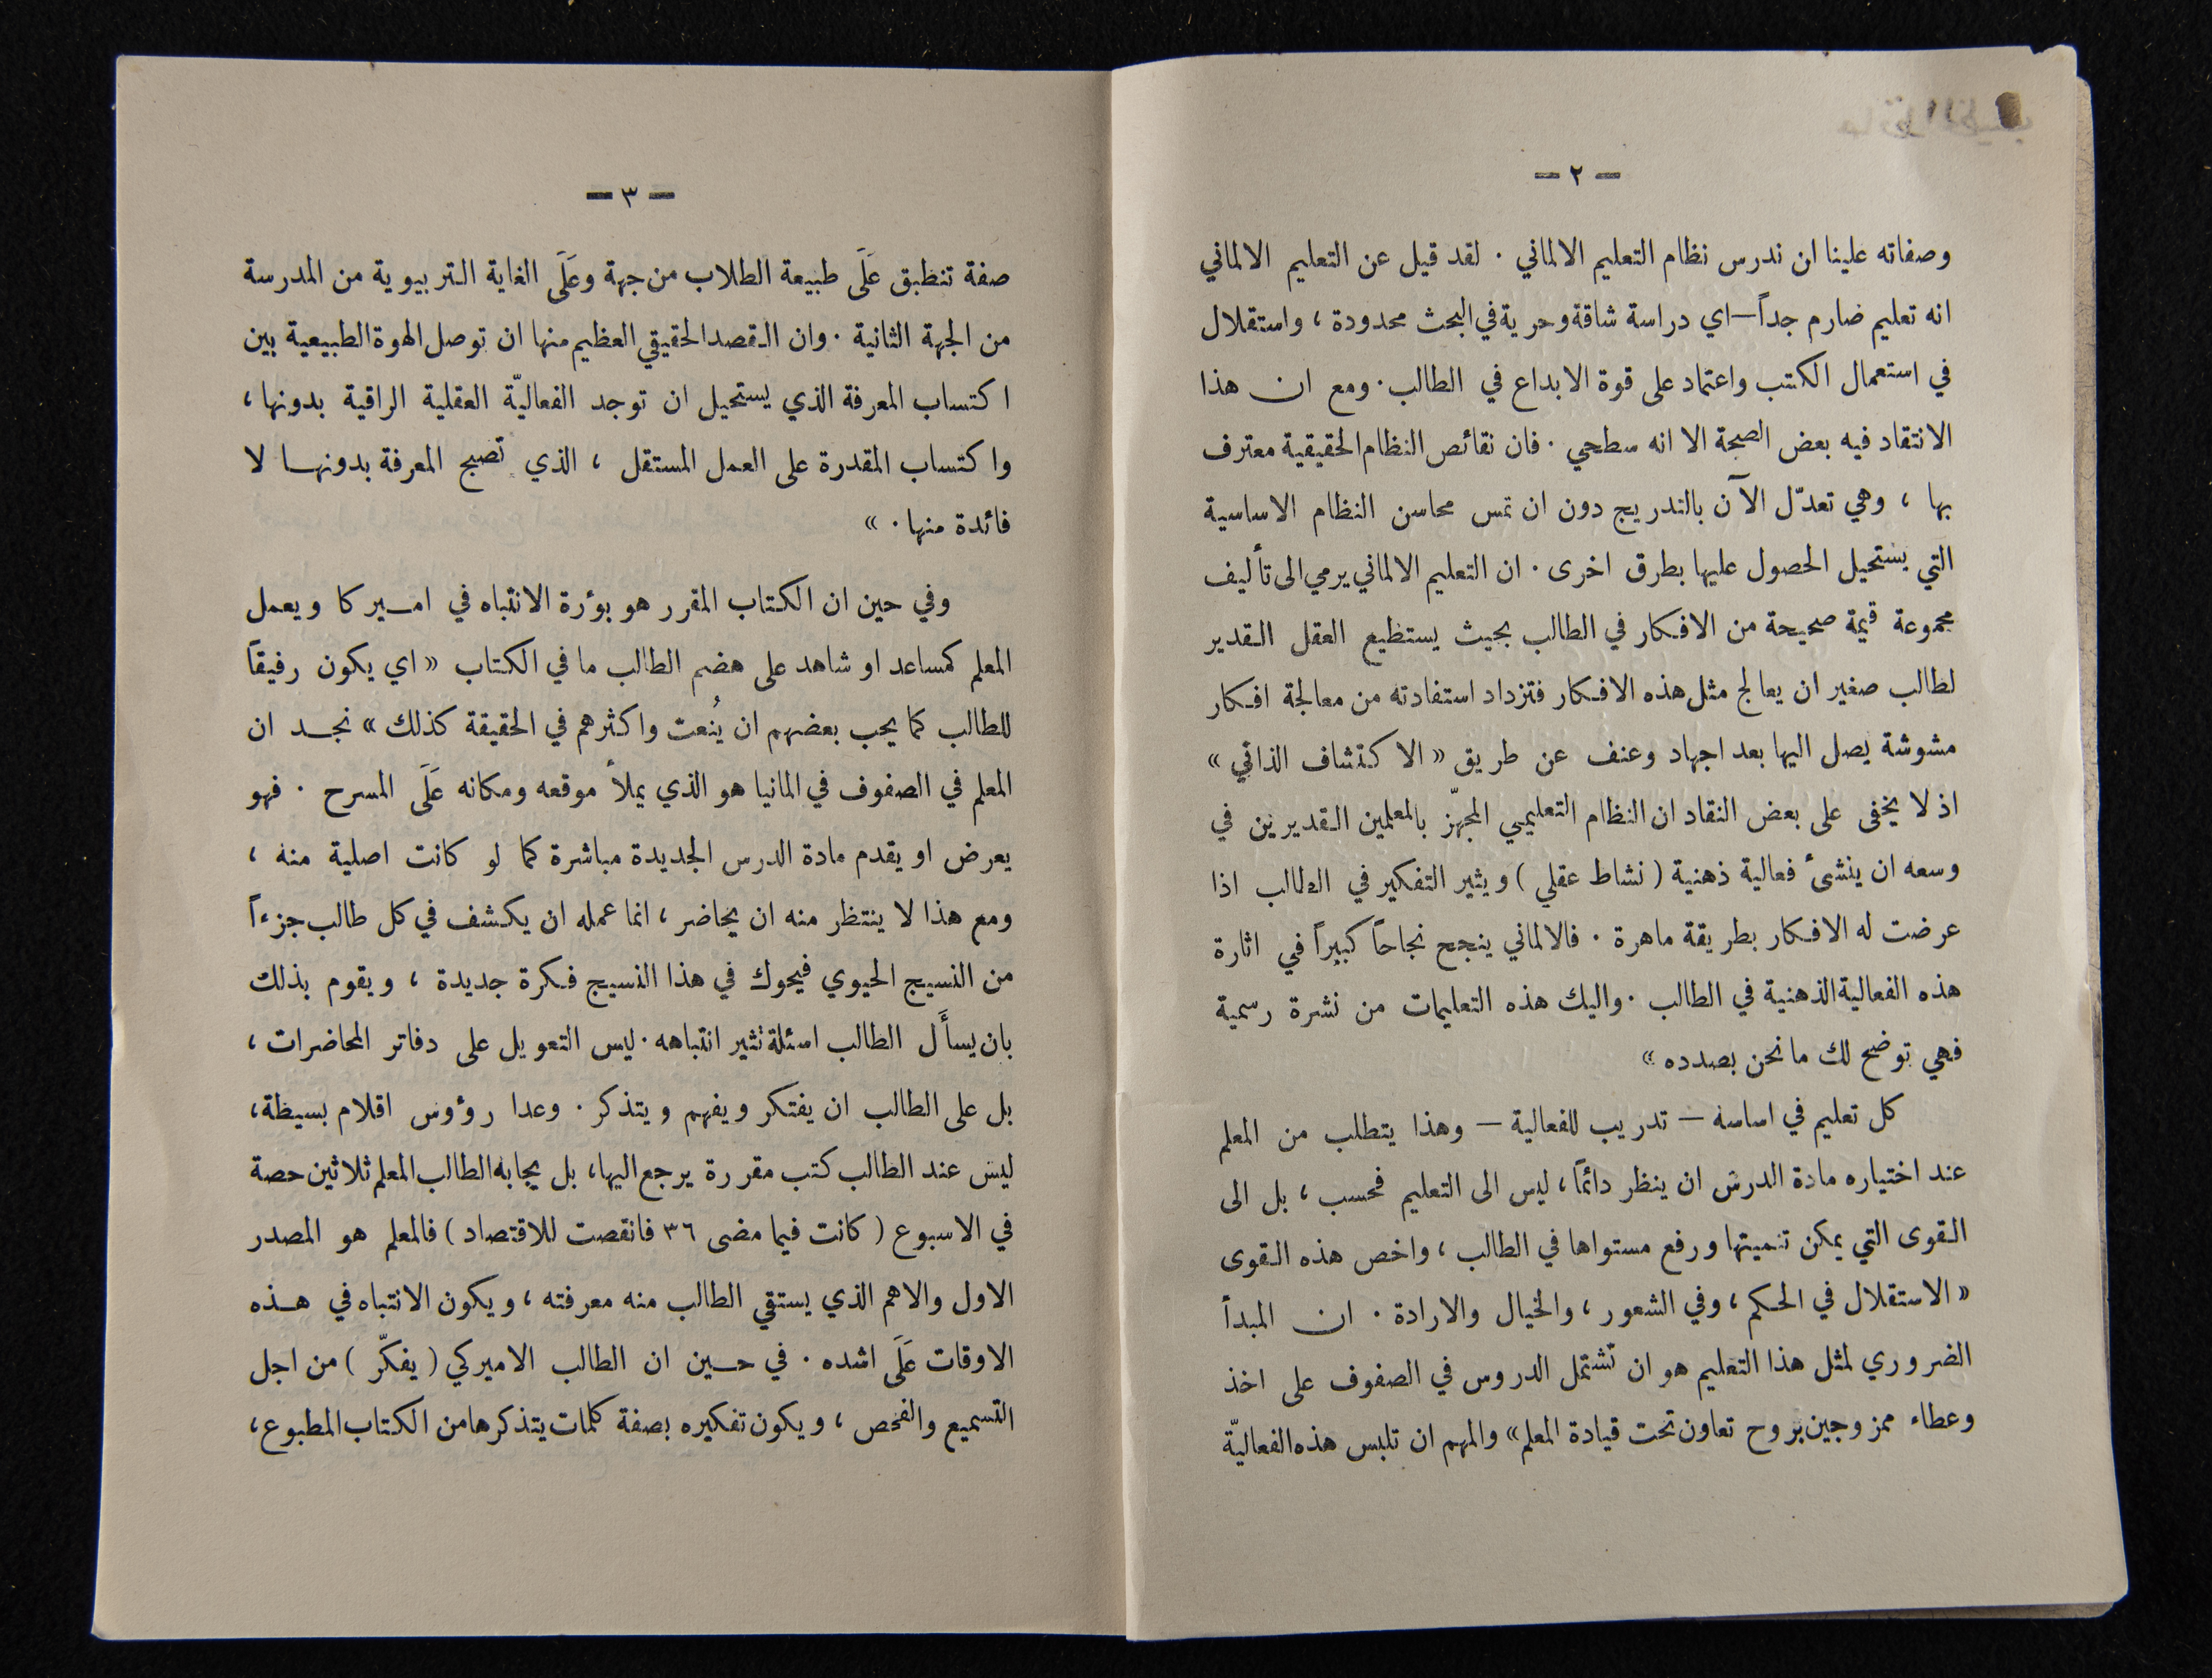 — ٢ —
وصفاته علينا ان ندرس نظام التعليم الالماني . لقد قيل عن التعليم الالماني
انه تعليم صارم جداً — اي دراسة شاقة وحرية في البحث محدودة ، واستقلال
في استعمال الكتب واعتماد على قوة الابداع في الطالب . ومع ان هذا
الانتقاد فيه بعض الصحة الا انه سطحي . فان نقائص النظام الحقيقية معترف
بها ، وهي تعدّل الآن بالتدريج دون ان تمس محاسن النظام الاساسية
التي يستحيل الحصول عليها بطرق اخرى . ان التعليم الالماني يرمي الى تأليف
مجموعة قيمة صحيحة من الافكار في الطالب بحيث يستطيع العقل القدير
لطالب صغير ان يعالج مثل هذه الافكار فتزداد استفادته من معالجة افكار
مشوشة يصل اليها بعد اجهاد وعنف عن طريق « الاكتشاف الذاتي »
اذ لا يخفى على بعض النقاد ان النظام التعليمي المجهّز بالمعلمين القديرين في
وسعه ان ينشئ فعالية ذهنية ( نشاط عقلي ) ويثير التفكير في الطالب اذا
عرضت له الافكار بطريقة ماهرة . فالالماني ينجح نجاحاً كبيراً في اثارة
هذه الفعالية الذهنية في الطالب . واليك هذه التعليمات من نشرة رسمية
فهي توضح لك ما نحن بصدده »
كل تعليم في اساسه — تدريب للفعالية — وهذا يتطلب من المعلم
عند اختياره مادة الدرس ان ينظر دائماً ، ليس الى التعليم فحسب ، بل الى
القوى التي يمكن تنميتها ورفع مستواها في الطالب ، واخص هذه القوى
« الاستقلال في الحكم ، وفي الشعور ، والخيال والارادة . ان المبدأ
الضروري لمثل هذا التعليم هو ان تشتمل الدروس في الصفوف على اخذ
وعطاء ممزوجين بروح تعاون تحت قيادة المعلم » والمهم ان تلبس هذه الفعاليّة
— ٣ —
صفة تنطبق عَلَى طبيعة الطلاب من جهة وعَلَى الغاية التربيوية من المدرسة
من الجهة الثانية . وان القصد الحقيقي العظيم منها ان توصل الهوة الطبيعية بين
اكتساب المعرفة الذي يستحيل ان توجد الفعاليّة العقلية الراقية بدونها ،
واكتساب المقدرة على العمل المستقل ، الذي تصبح المعرفة بدونها لا
فائدة منها . »
وفي حين ان الكتاب المقرر هو بؤرة الانتباه في اميركا ويعمل
المعلم كمساعد او شاهد على هضم الطالب ما في الكتاب « اي يكون رفيقاً
للطالب كما يحب بعضهم ان يُنعت واكثرهم في الحقيقة كذلك » نجد ان
المعلم في الصفوف في المانيا هو الذي يملأ موقعه ومكانه عَلَى المسرح . فهو
يعرض او يقدم مادة الدرس الجديدة مباشرة كما لو كانت اصلية منه ،
ومع هذا لا ينتظر منه ان يحاضر ، انما عمله ان يكشف في كل طالب جزءاً
من النسيج الحيوي فيحوك في هذا النسيج فكرة جديدة ، ويقوم بذلك
بان يسأَل الطالب اسئلة تثير انتباهه . ليس التعويل على دفاتر المحاضرات ،
بل على الطالب ان يفتكر ويفهم ويتذكر . وعدا رؤوس اقلام بسيطة ،
ليس عند الطالب كتب مقررة يرجع اليها ، بل يجابه الطالب المعلم ثلاثين حصة
في الاسبوع ( كانت فيما مضى ٣٦ فانقصت للاقتصاد ) فالمعلم هو المصدر
الاول والاهم الذي يستقي الطالب منه معرفته ، ويكون الانتباه في هذه
الاوقات عَلَى اشده . في حين ان الطالب الاميركي ( يفكّر ) من اجل
التسميع والفحص ، ويكون تفكيره بصفة كلمات يتذكرها من الكتاب المطبوع ،